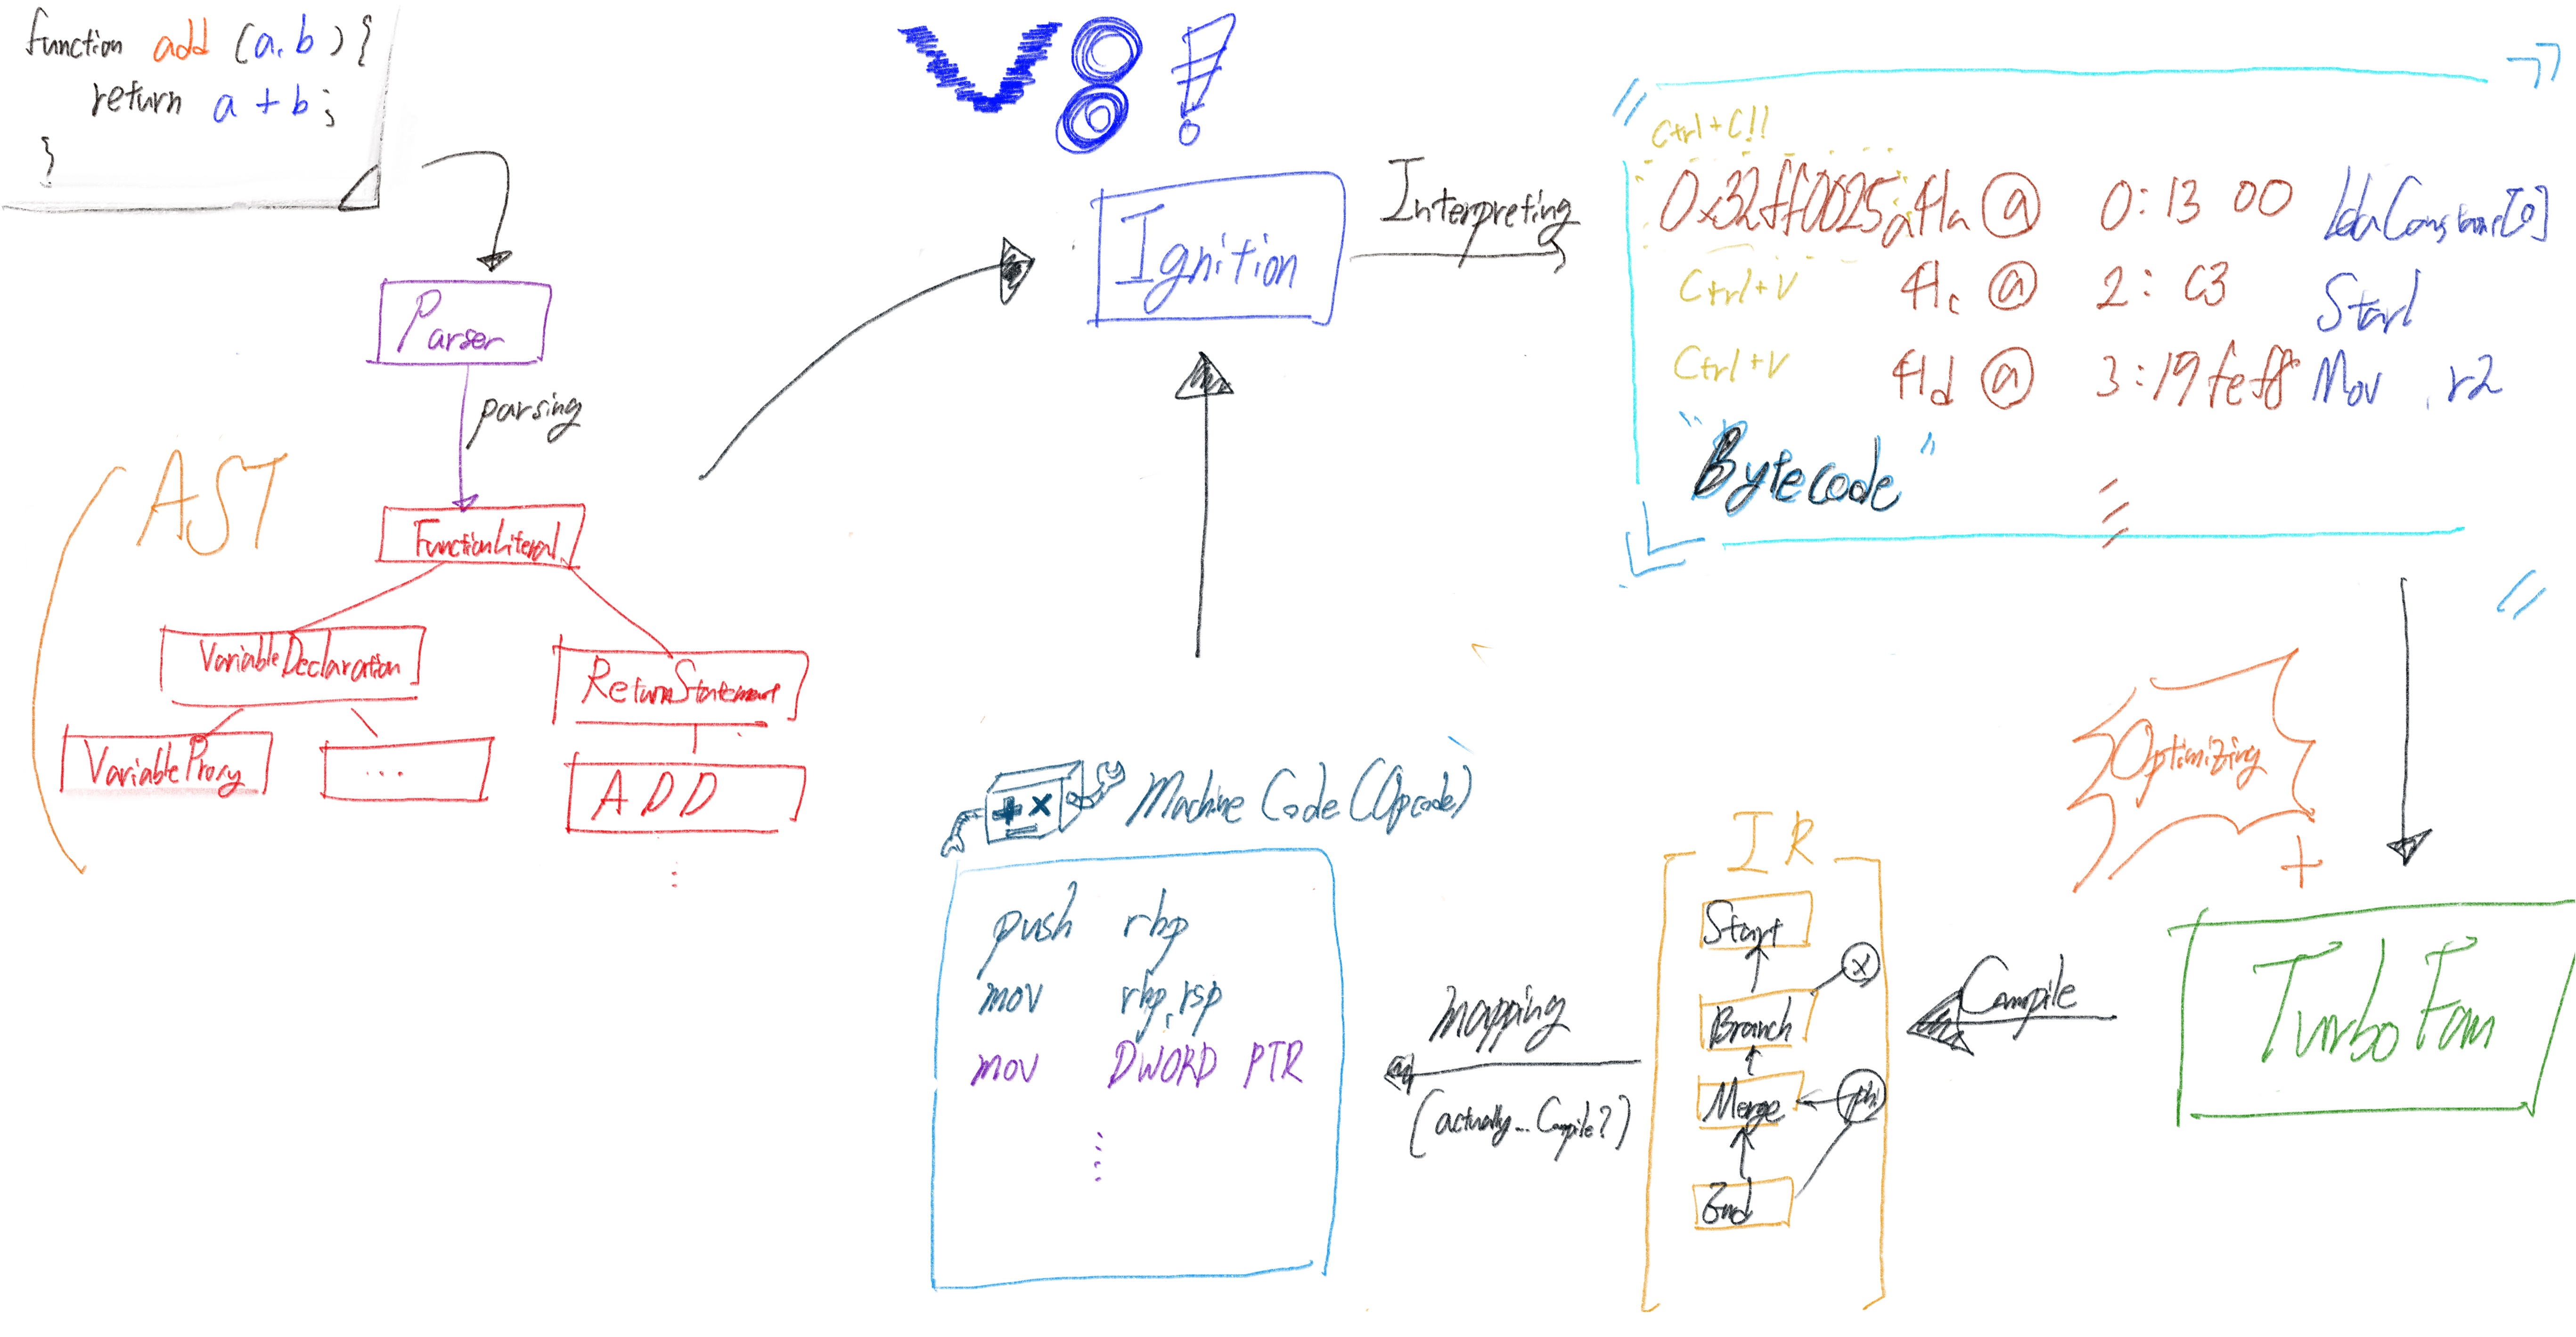 function add (a, b) {
return a + b;
}
V8!
Parser
parsing
AST
FunctionLiteral
VariableDeclaration
ReturnStatement
VariableProxy
...
ADD
Ignition
Interpreting
Ctrl+C!!
0x32ff0025a41a @ 0: 13 00 LdaConstant[0]
Ctrl+V 41c @ 2: C3 Star1
Ctrl+V 41d @ 3: 19 fe f8 Mov , r2
"Bytecode"
Optimizing
+
TurboFan
Compile
IR
Start
x
Branch
Merge
phi
End
mapping
(actually... Compile?)
Machine Code (Opcode)
push rbp
mov rbp, rsp
mov DWORD PTR